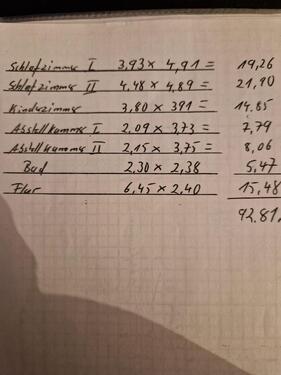 Schlafzimmer I 3,93 x 4,91 = 19,26
Schlafzimmer II 4,48 x 4,89 = 21,90
Kinderzimmer 3,80 x 391 = 14,85
Abstellkammer I 2,09 x 3,73 = 7,79
Abstellkammer II 2,15 x 3,75 = 8,06
Bad 2,30 x 2,38 5,47
Flur 6,45 x 2,40 15,48
92.81